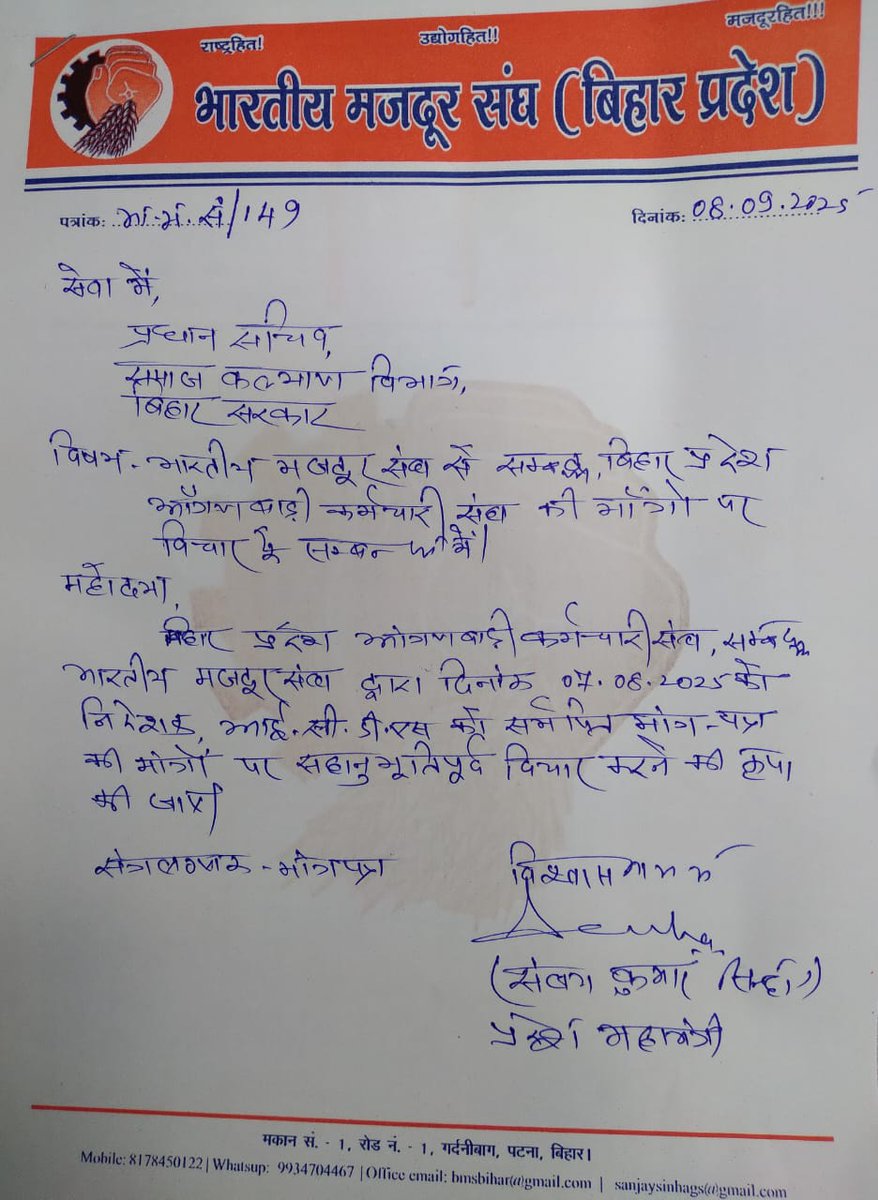 राष्ट्रहित! उद्योगहित!! मजदूरहित!!!
भारतीय मजदूर संघ (बिहार प्रदेश)
पत्रांक: भा.म.सं/149 दिनांक: 08.09.2025
सेवा में,
प्रधान सचिव,
समाज कल्याण विभाग,
बिहार सरकार
विषय - भारतीय मजदूर संघ से सम्बद्ध, बिहार प्रदेश
आँगणबाड़ी कर्मचारी संघ की माँगों पर
विचार के सम्बन्ध में।
महोदया,
बिहार प्रदेश आंगणबाड़ी कर्मचारी संघ, सम्बद्ध
भारतीय मजदूर संघ द्वारा दिनांक 07.08.2025 को
निदेशक, आई.सी.डी.एस को समर्पित मांग-पत्र
की मांगों पर सहानुभूतिपूर्व विचार करने की कृपा
की जाए।
संगलग्नक - मांगपत्र
विश्वासभाजन
(संजय कुमार सिन्हा)
प्रदेश महामंत्री
मकान सं. - 1, रोड नं. - 1, गर्दनीबाग, पटना, बिहार।
Mobile: 8178450122 | Whatsup: 9934704467 | Office email: bmsbihar@gmail.com | sanjaysinhags@gmail.com